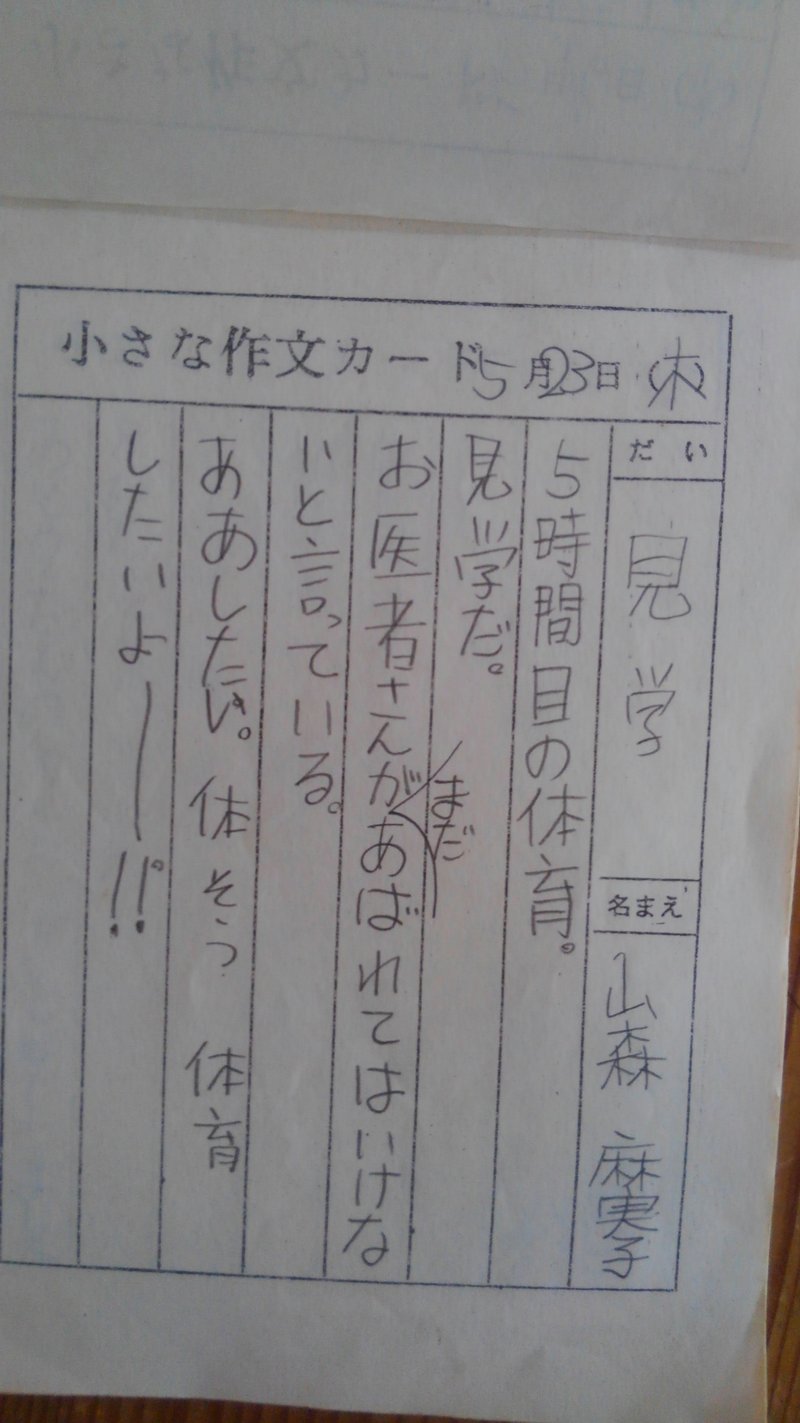 小さな作文カード 5月23日(木)
だい 見学
名まえ 山森 麻実子
5時間目の体育。
見学だ。
まだ
お医者さんがあばれてはいけな
いと言っている。
ああしたい。体そう 体育
したいよー!!